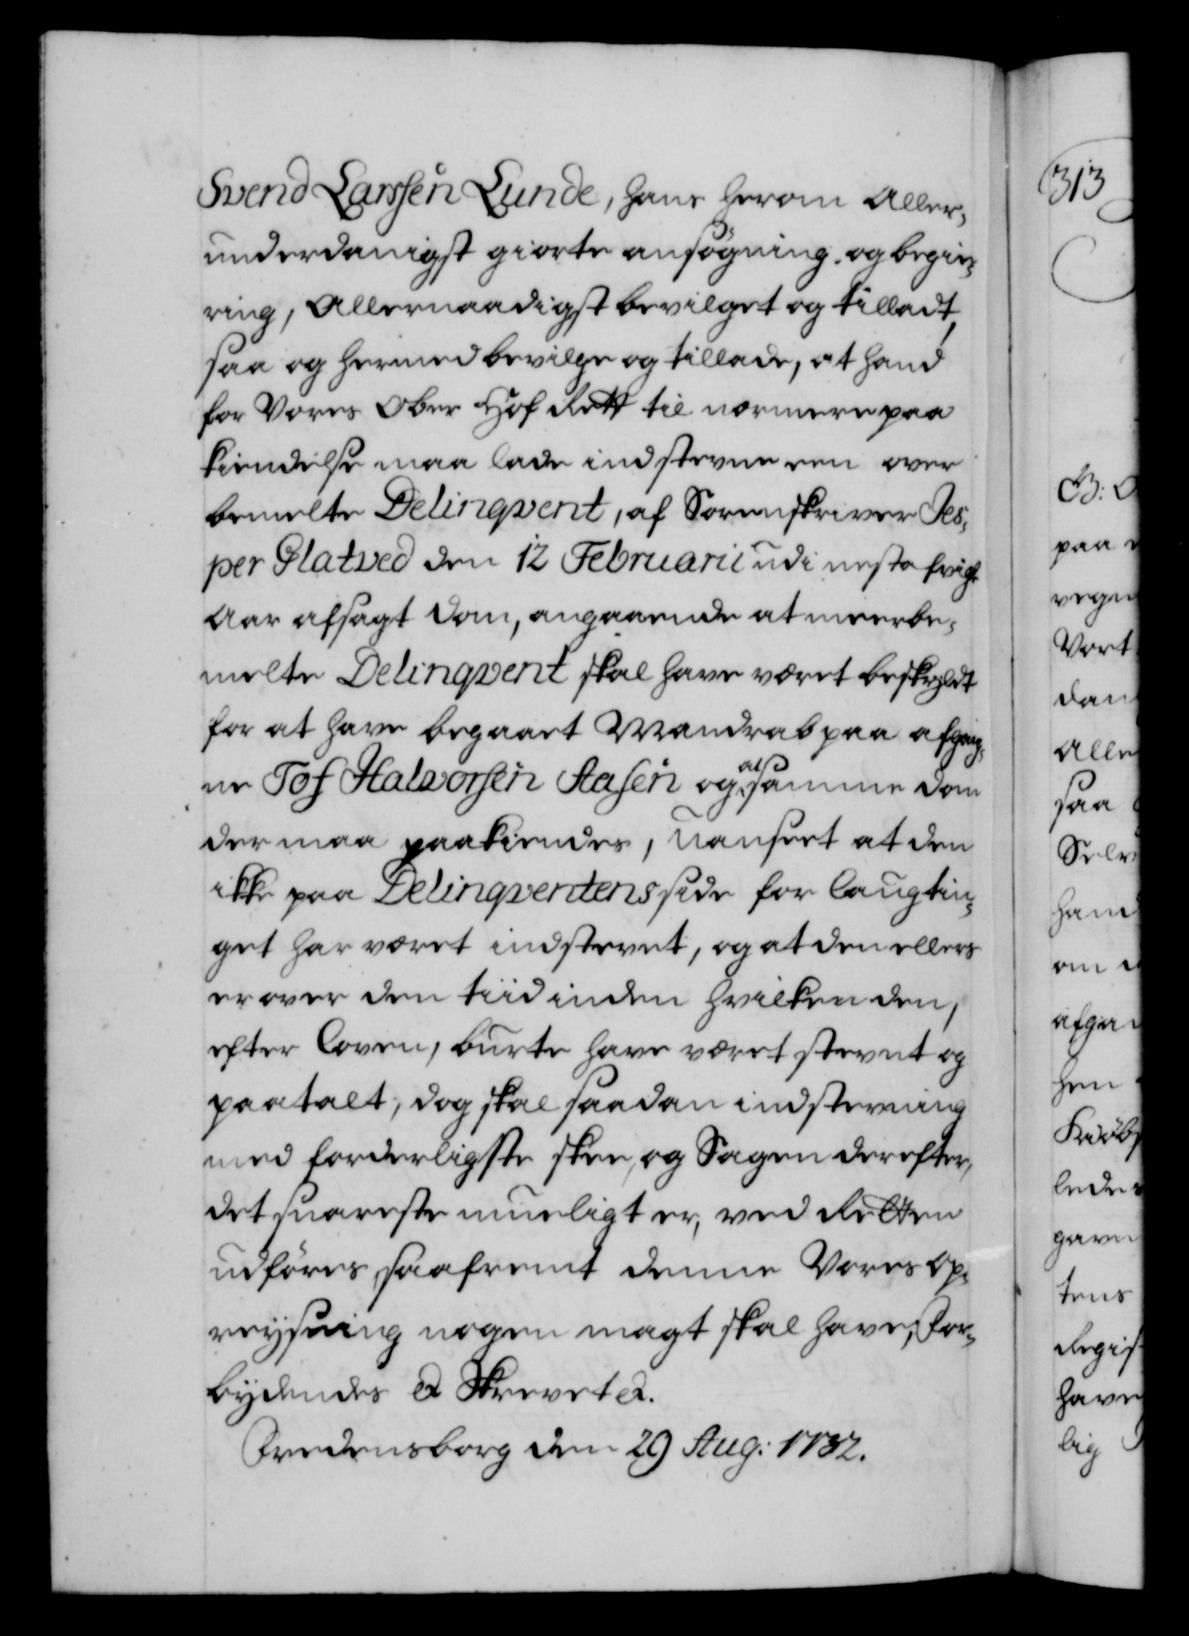 Svend Larssen Lunde, hans herom Aller-
underdanigst giorte ansøgning og begie-
ring, Allernaadigst bevilget og tilladt,
saa og hermed bevilge og tillade, at hand
for Vores Ober Hof Rett til nærmere paa
kiendelse maa lade indstevne een over
bemelte Delinqvent, af Sorenskriver Jes-
per Glatved den 12 Februarii udi nestafvigt
Aar afsagt Dom, angaaende at meerbe-
melte Delinqvent skal have været beskyldt
for at have begaaet Mandrab paa afgang-
ne Tof Halvorsen Aasen og at samme Dom
der maa paakiendes, uanseet at den
ikke paa Delinqventens side for Laugtin-
get har været indstevnt, og at den ellers
er over den tiid inden hvilken den,
efter Loven, burte have været stevnt og
paatalt, dog skal saadan indstevning
med forderligste skee, og Sagen derefter,
det snareste mueligt er, ved Retten
udføres, saafremt denne Vores op-
reysning nogen magt skal have, For-
bydendes &c Skrevet &c.
Fredensborg den 29 Aug: 1732.
313
B: O
paa
vegn
Vort
dan
Alle
saa
Selv
hand
om
afga
hen
Kiøb
lede
gave
tens
Regis
have
lig